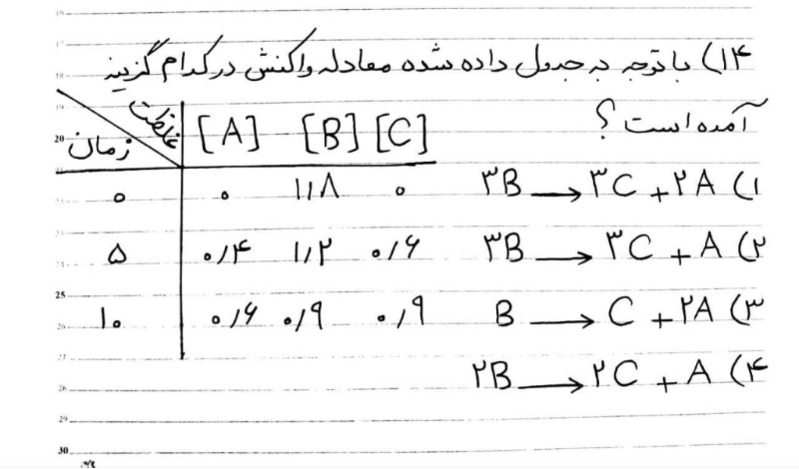 ۱۴) با توجه به جدول داده شده معادله واکنش در کدام گزینه
آمده است؟
غلظت زمان [A] [B] [C]
۰ ۰ ۱/۸ ۰
۵ ۰/۴ ۱/۲ ۰/۶
۱۰ ۰/۶ ۰/۹ ۰/۹
۱) ۳B → ۳C + ۲A
۲) ۳B → ۳C + A
۳) B → C + ۲A
۴) ۲B → ۲C + A
17
18
19
20
25
26
27
28
29
30